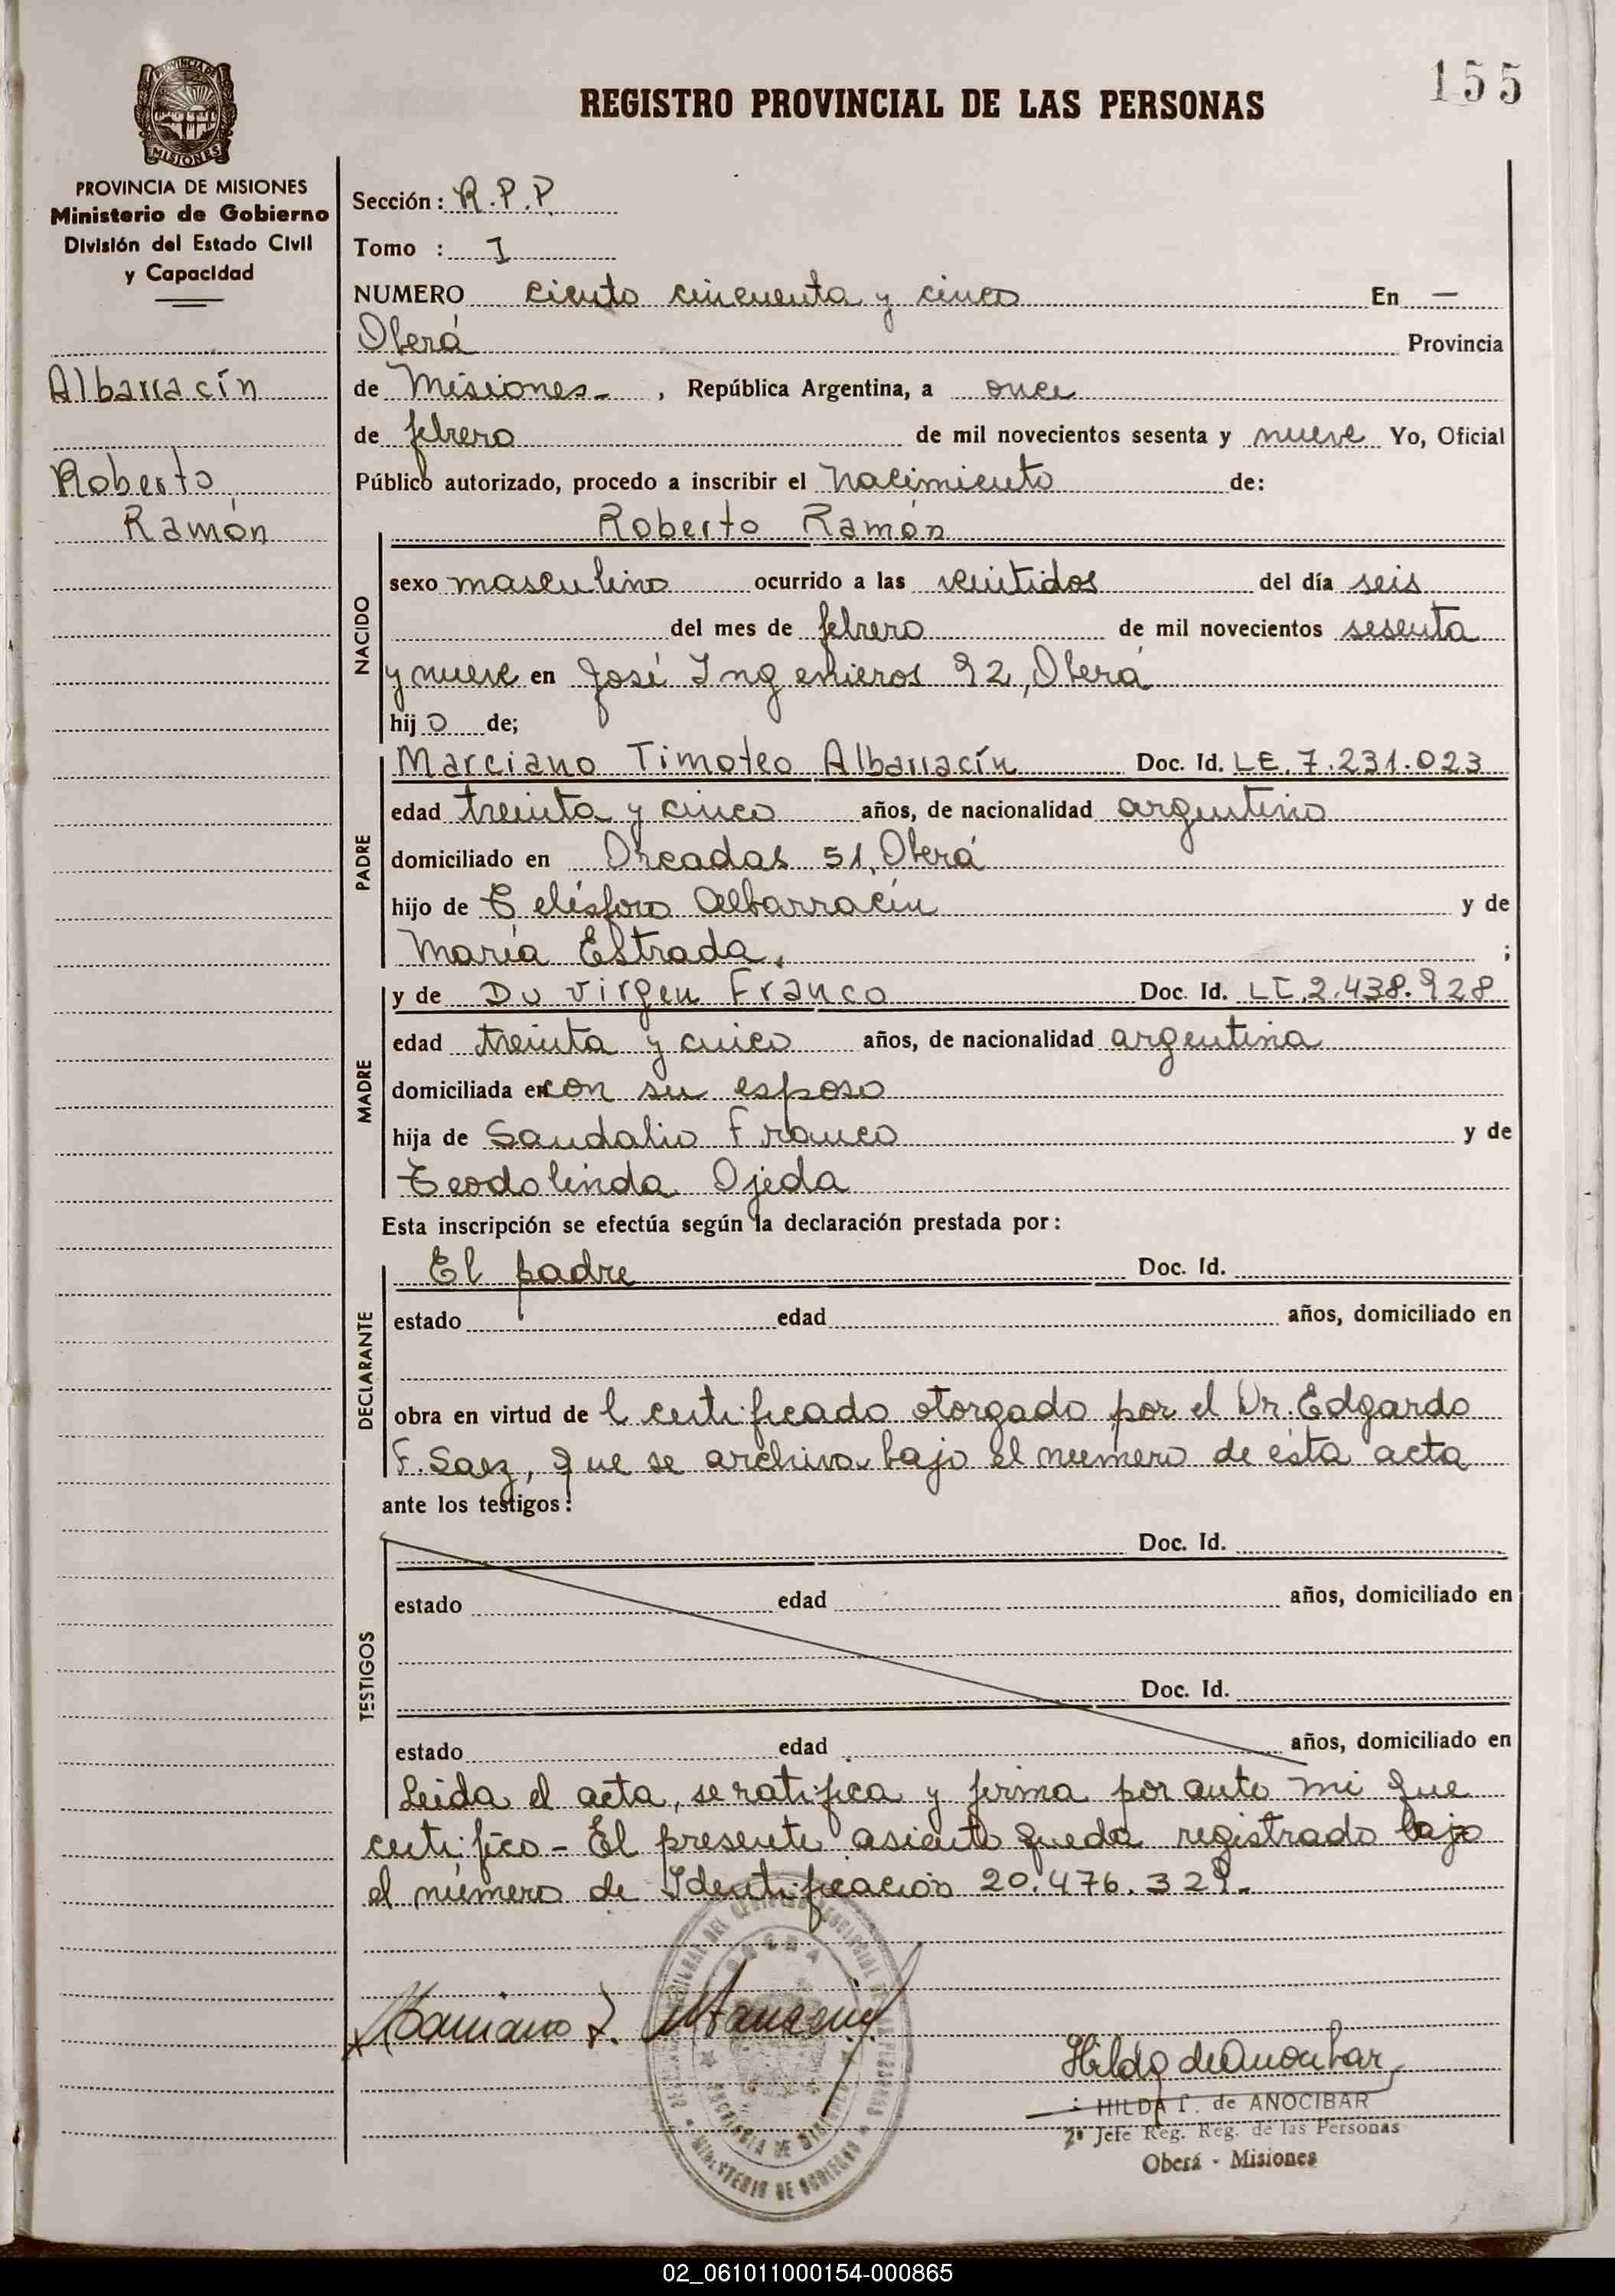 155
REGISTRO PROVINCIAL DE LAS PERSONAS
PROVINCIA DE
MISIONES
PROVINCIA DE MISIONES
Ministerio de Gobierno
División del Estado Civil
y Capacidad
Albarracín
Roberto
Ramón
Sección: R.P.P.
Tomo : I
NUMERO ciento cincuenta y cinco En —
Oberá Provincia
de Misiones- , República Argentina, a once
de febrero de mil novecientos sesenta y nueve Yo, Oficial
Público autorizado, procedo a inscribir el nacimiento de:
Roberto Ramón
NACIDO
sexo masculino ocurrido a las veintidos del día seis
del mes de febrero de mil novecientos sesenta
y nueve en José Ingenieros 92, Oberá
hijo de;
PADRE
Marciano Timoteo Albarracín Doc. Id. LE. 7.231.023
edad treinta y cinco años, de nacionalidad argentino
domiciliado en Orcadas 51, Oberá
hijo de Telésforo Albarracín y de
María Estrada. ;
MADRE
y de Du virgen Franco Doc. Id. LC. 2.438.928
edad treinta y cinco años, de nacionalidad argentina
domiciliada en con su esposo
hija de Sandalio Franco y de
Teodolinda Ojeda
Esta inscripción se efectúa según la declaración prestada por:
DECLARANTE
El padre Doc. Id.
estado edad años, domiciliado en
obra en virtud de l certificado otorgado por el Dr. Edgardo
F. Saez, que se archiva bajo el número de ésta acta
ante los testigos:
TESTIGOS
Doc. Id.
estado edad años, domiciliado en
Doc. Id.
estado edad años, domiciliado en
Leida el acta, se ratifica y firma por ante mi que
certifico - El presente asiento queda registrado bajo
el número de Identificación 20.476.329.
MINISTERIO DE GOBIERNO
Hilda de Anocibar
HILDA F. de ANOCIBAR
2º Jefe Reg. Reg. de las Personas
Oberá - Misiones
02_061011000154-000865